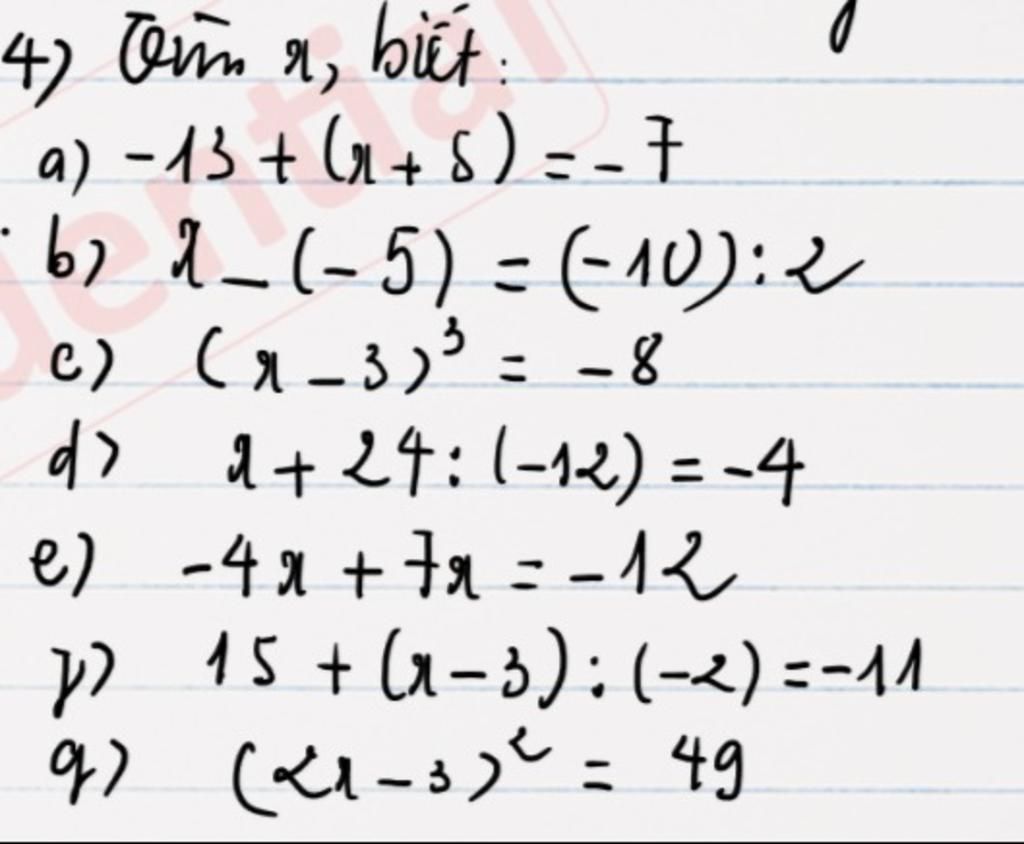 4) Tìm x, biết:
a) -13 + (x + 5) = - 7
b) x - (- 5) = (-10) : 2
c) (x - 3)³ = - 8
d) x + 24 : (-12) = -4
e) -4x + 7x = - 12
p) 15 + (x - 3) : (-2) = -11
q) (2x - 3)² = 49
dential